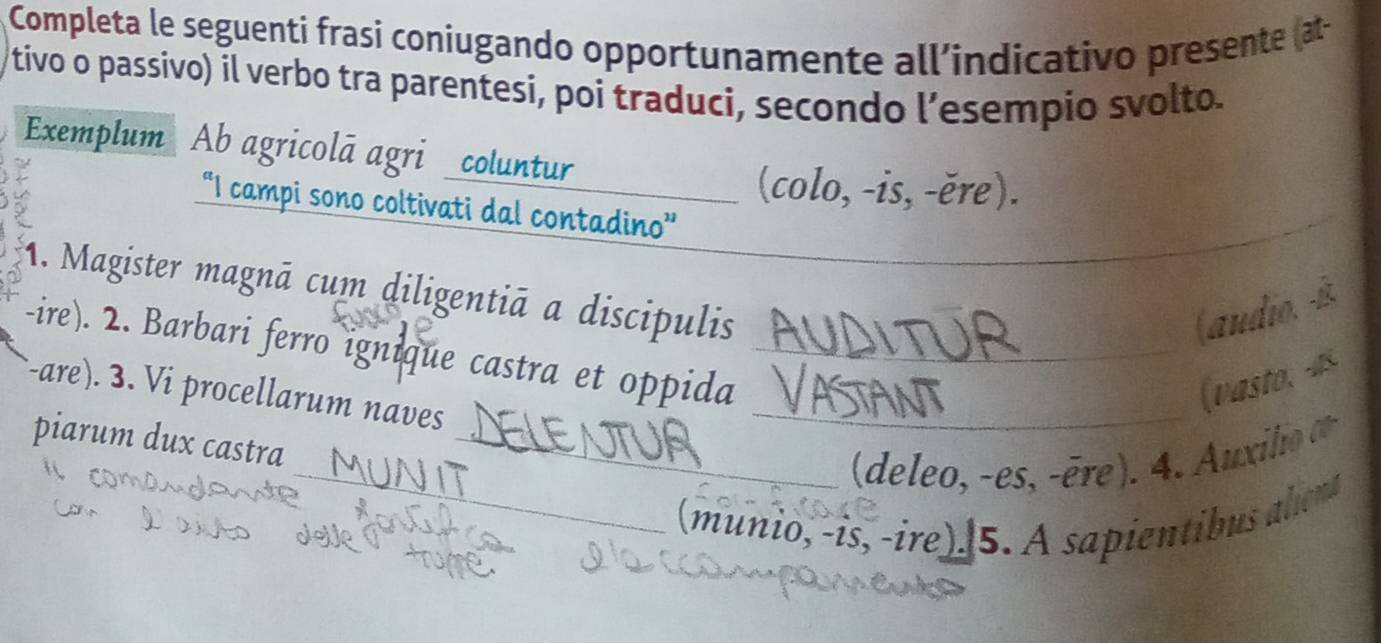 Completa le seguenti frasi coniugando opportunamente all'indicativo presente (at-
tivo o passivo) il verbo tra parentesi, poi traduci, secondo l'esempio svolto.
Exemplum Ab agricolā agri coluntur (colo, -is, -ĕre).
"I campi sono coltivati dal contadino"
1. Magister magnā cum diligentiā a discipulis AUDITUR (audio, -is,
fuoco e
-ire). 2. Barbari ferro ignique castra et oppida VASTANT (vasto, -as,
-are). 3. Vi procellarum naves DELENTUR (deleo, -es, -ēre). 4. Auxilio co-
piarum dux castra MUNIT (munio, -is, -ire). 5. A sapientibus aliena
fortificare
il comandante fortifica
con l'aiuto delle truppe l'accampamento